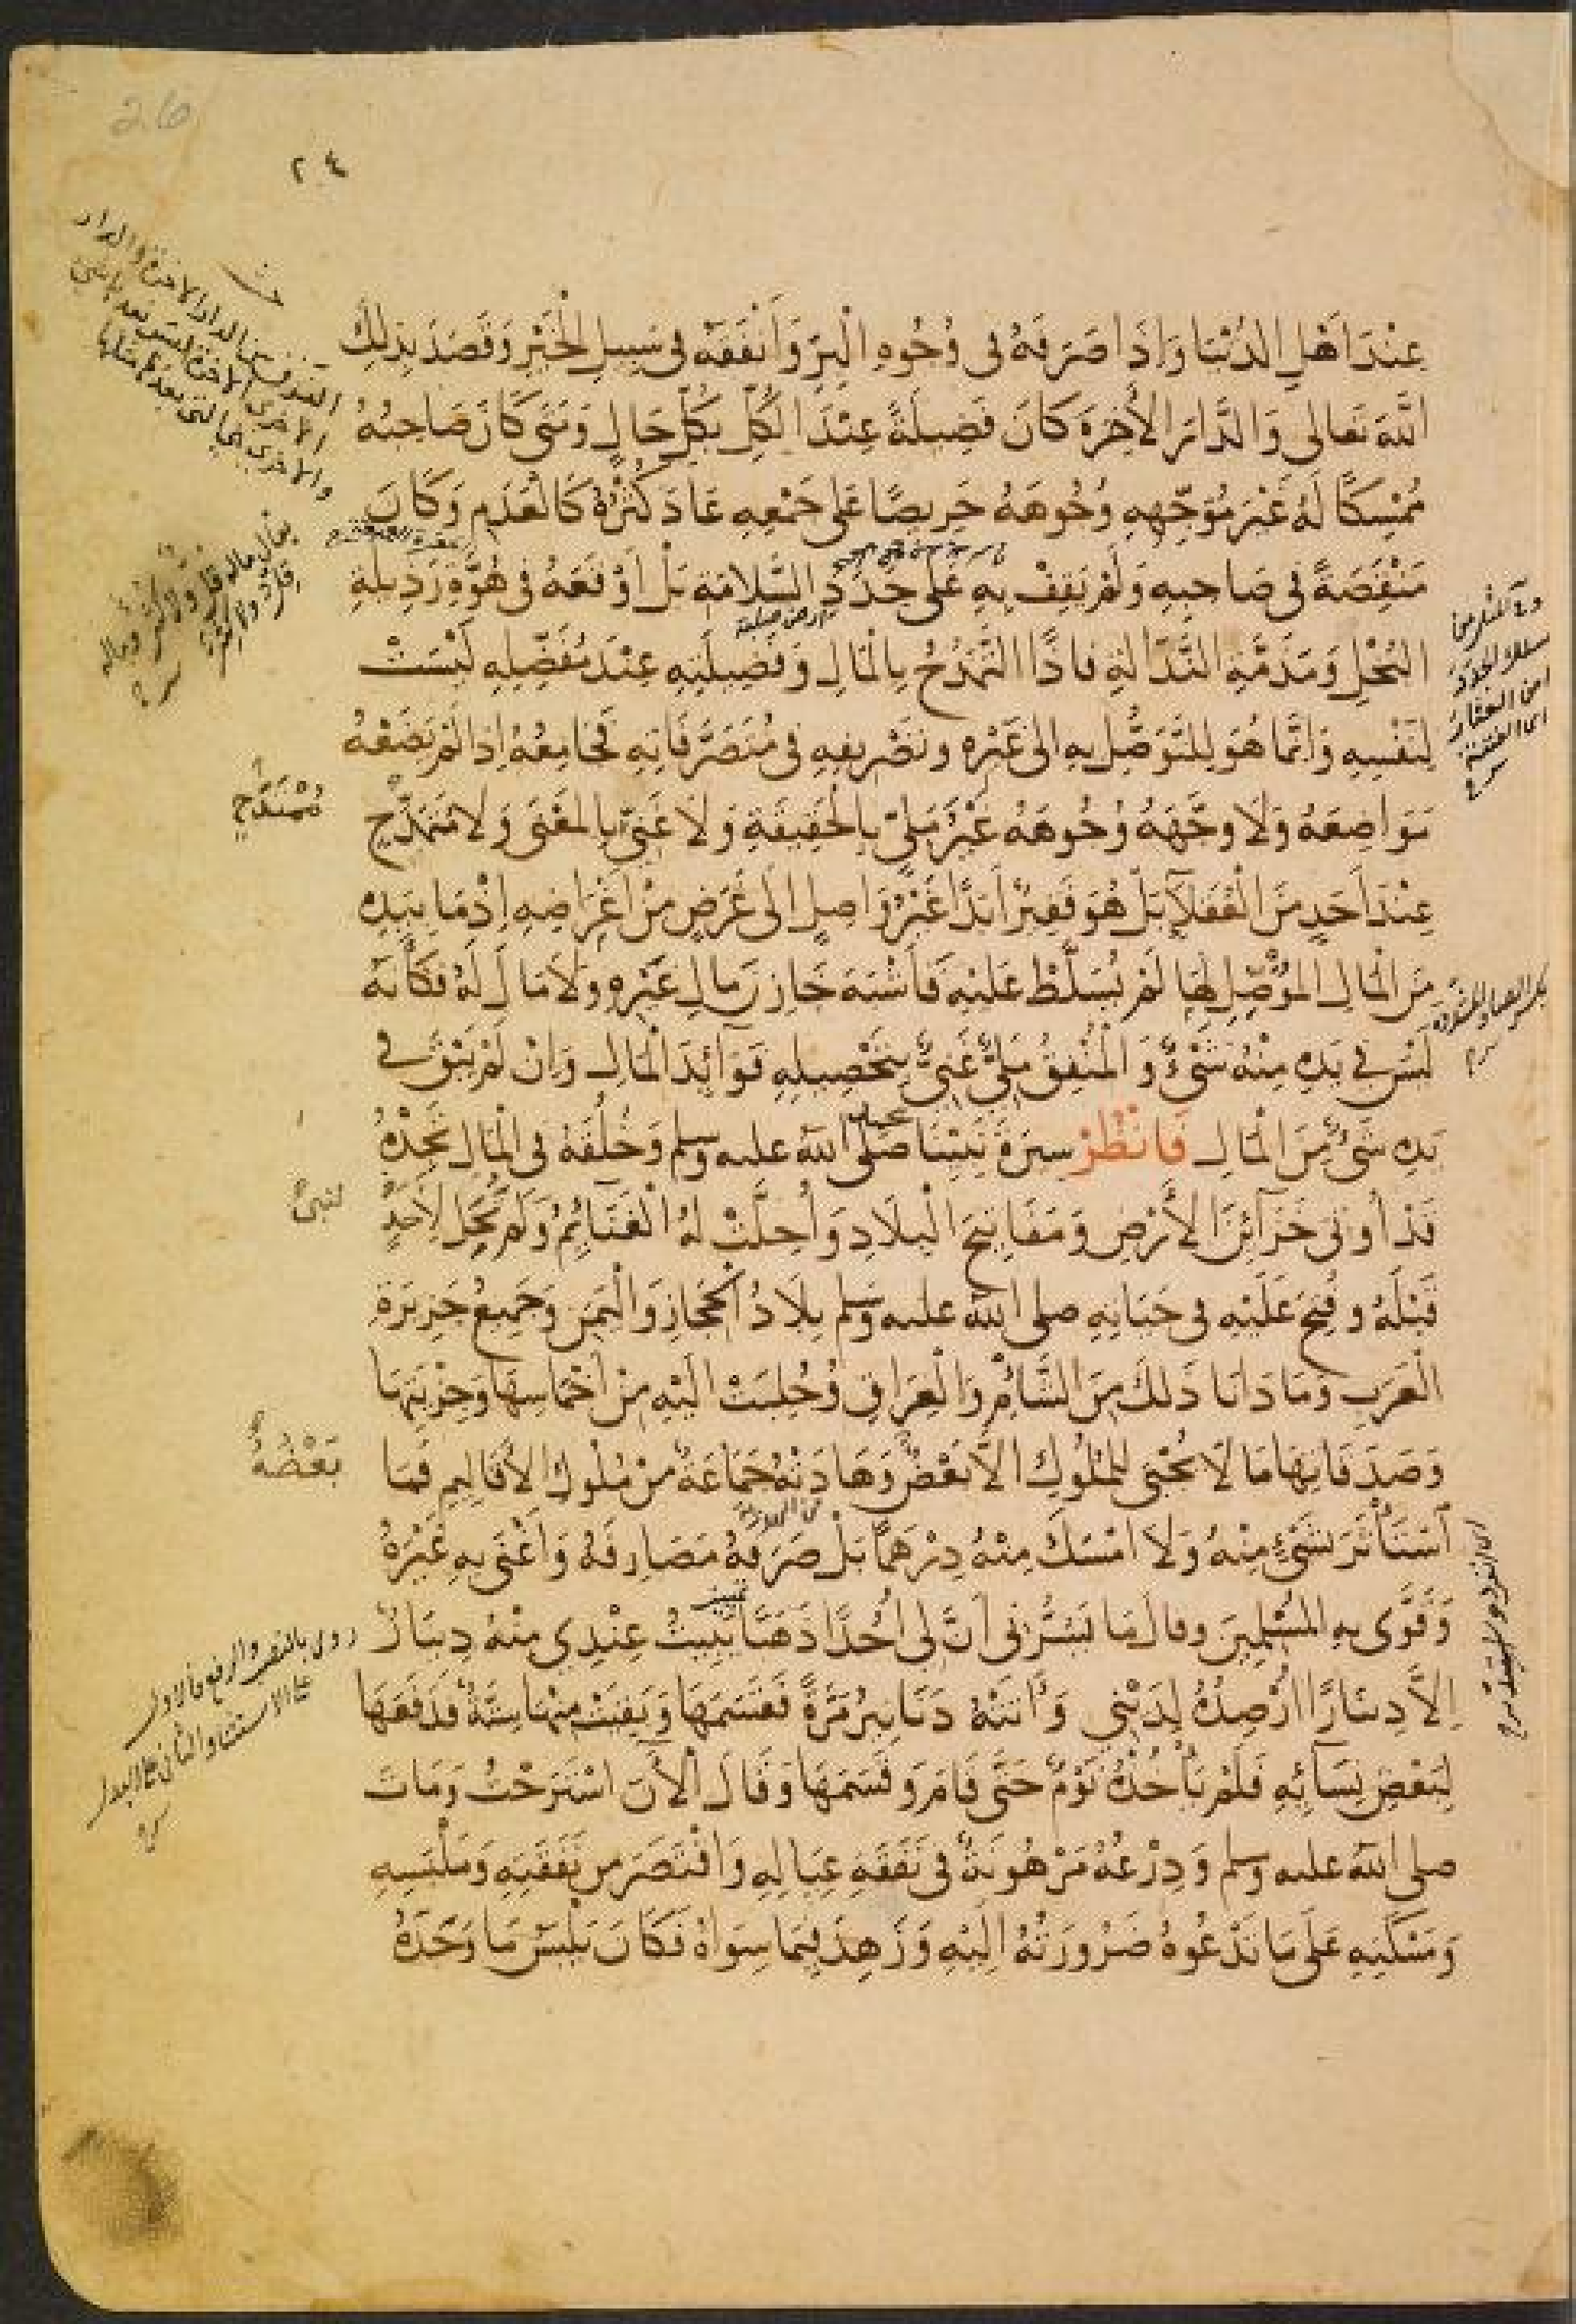 26
٢٤
عِنْدَ اَهْلِ الدُّنْيَا وَاِذَا صَرَفَهُ فى وُجُوهِ الْبِرِّ وَاَنْفَقَهُ فى سَبِيلِ الْخَيْرِ وَقَصَدَ بِذٰلِكَ
اللّٰهَ تَعَالى وَالدَّارَ الْاٰخِرَةَ كَانَ فَضِيلَةً عِنْدَ الْكُلِّ بِكُلِّ حَالٍ وَمَتَى كَانَ صَاحِبُهُ
مُمْسِكًا لَهُ غَيْرَ مُوَجِّهِهِ وُجُوهَهُ حَرِيصًا عَلى جَمْعِهِ عَادَ كُثْرُهُ كَالْعَدَمِ وَكَانَ
مَنْقَصَةً فى صَاحِبِهِ وَلَمْ يَقِفْ بِهِ عَلى جَدَدِ السَّلَامَةِ بَلْ اَوْقَعَهُ فى هُوَّةِ رَذِيلَةِ
الْبُخْلِ وَمَذَمَّةِ النَّذَالَةِ فَاِذًا التَّمَدُّحُ بِالْمَالِ وَفَضِيلَتِهِ عِنْدَ مُفَضِّلِهِ لَيْسَتْ
لِنَفْسِهِ وَاِنَّمَا هُوَ لِلتَّوَصُّلِ بِهِ اِلى غَيْرِهِ وَتَصْرِيفِهِ فى مُتَصَرَّفَاتِهِ فَجَامِعُهُ اِذَا لَمْ يَضَعْهُ
مَوَاضِعَهُ وَلَا وَجَّهَهُ وُجُوهَهُ غَيْرُ مَلِيٍّ بِالْحَقِيقَةِ وَلَا غَنِيٍّ بِالْمَعْنَى وَلَا مُتَمَدَّحٍ
مُمْتَدَحٍ
عِنْدَ اَحَدٍ مِنَ الْعُقَلَاۤءِ بَلْ هُوَ فَقِيرٌ اَبَدًا غَيْرُ وَاصِلٍ اِلَى غَرَضٍ مِنْ اَغْرَاضِهِ اِذْ مَا بِيَدِهِ
مِنَ الْمَالِ الْمُوَصِّلِ لَهَا لَمْ يُسَلَّطْ عَلَيْهِ فَاَشْبَهَ خَازِنَ مَالِ غَيْرِهِ وَلَا مَالَ لَهُ فَكَاَنَّهُ
لَيْسَ فى يَدِهِ مِنْهُ شَىْءٌ وَالْمُنْفِقُ مَلِيٌّ غَنِيٌّ بِتَحْصِيلِهِ فَوَاۤئِدَ الْمَالِ وَاِنْ لَمْ يَبْقَ فى
يَدِهِ شَىْءٌ مِنَ الْمَالِ فَانْظُرْ سِيرَةَ نَبِيِّنَا صَلَّى اللّٰه عليه وسلم وَخُلُقَهُ فى الْمَالِ تَجِدْهُ
قَدْ اُوتِىَ خَزَاۤئِنَ الْاَرْضِ وَمَفَاتِيحَ الْبِلَادِ وَاُحِلَّتْ لَهُ الْغَنَائِمُ وَلَمْ تَحِلَّ لِاَحَدٍ
لِنَبِيٍّ
قَبْلَهُ وَفُتِحَ عَلَيْهِ فى حَيَاتِهِ صلى اللّٰه عليه وسلم بِلَادُ الْحِجَازِ وَالْيَمَنِ وَجَمِيعُ جَزِيرَةِ
الْعَرَبِ وَمَا دَانَا ذَلِكَ مِنَ الشَّاْمِ وَالْعِرَاقِ وَجُلِبَتْ اِلَيْهِ مِنْ اَخْمَاسِهَا وَجِزْيَتِهَا
وَصَدَقَاتِهَا مَا لَا يُجْبَى لِلْمُلُوكِ اِلَّا بَعْضُ وَهَادَتْهُ جَمَاعَةٌ مِنْ مُلُوكِ الْاَقَالِيمِ فَمَا
بَعْضُهُ
اسْتَاْثَرَ بِشَىْءٍ مِنْهُ وَلَا اَمْسَكَ مِنْهُ دِرْهَمًا بَلْ صَرَفَهُ مَصَارِفَهُ وَاَغْنَى بِهِ غَيْرَهُ
وَقَوَّى بِهِ الْمُسْلِمِينَ وقال مَا يَسُرُّنى اَنَّ لِى اُحُدًا ذَهَبًا يَبِيتُ عِنْدِى مِنْهُ دِينَارٌ
اِلَّا دِينَارًا اُرْصِدُهُ لِدَيْنِى وَاَتَتْهُ دَنَانِيرُ مَرَّةً فَقَسَمَهَا وَبَقِيَتْ مِنْهَا سِتَّةٌ فَدَفَعَهَا
لِبَعْضِ نِسَاۤئِهِ فَلَمْ يَاْخُذْهُ نَوْمٌ حَتَّى قَامَ وَقَسَمَهَا وَقَالَ اَلْاٰنَ اسْتَرَحْتُ وَمَاتَ
صلى اللّٰه عليه وسلم وَدِرْعُهُ مَرْهُونَةٌ فى نَفَقَةِ عِيَالِهِ وَاقْتَصَرَ مِن نَفَقَتِهِ وَمَلْبَسِهِ
وَمَسْكَنِهِ عَلَى مَا تَدْعُوهُ ضَرُورَتُهُ اِلَيْهِ وَزَهِدَ فِيمَا سِوَاهُ فَكَانَ يَلْبَسُ مَا وَجَدَهُ
روى بالنصب والرفع فالاول
على الاستثناء والثانى على البدل